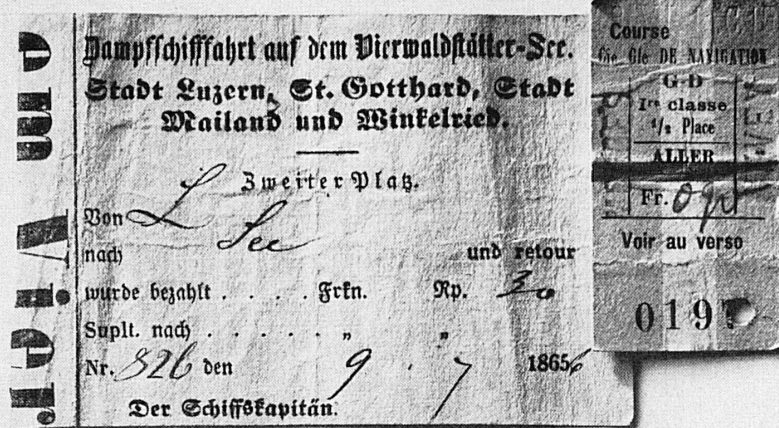 em Vier
Dampfschifffahrt auf dem Vierwaldstätter-See.
Stadt Luzern, St. Gotthard, Stadt
Mailand und Winkelried.
Zweiter Platz.
Von L
nach See und retour
wurde bezahlt . . . . Frkn. Rp. 30
Suplt. nach . . . . . „ „
Nr. 326 den 9 . 7 1865 6
Der Schiffskapitän:
Course
Cie Gle DE NAVIGATION
G-D
1re classe
1/2 Place
ALLER
Fr. 0
Voir au verso
019